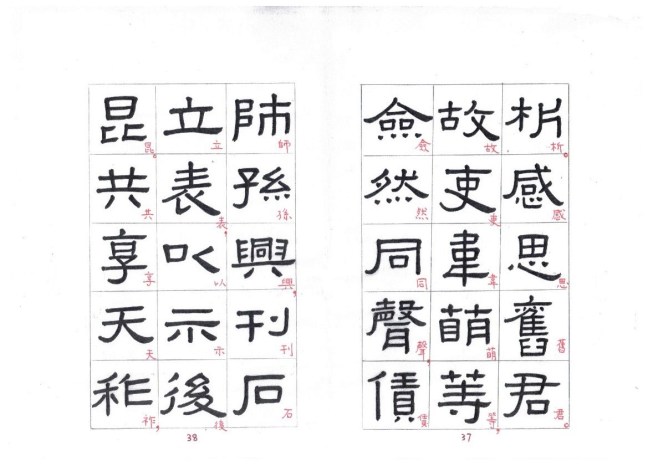 析感思舊君
析。感思舊君。
故吏韋萌等
故吏韋萌等,
僉然同聲債
僉然同聲,債
37
師孫興刊石
師孫興,刊石
立表以示後
立表,以示後
昆共享天祚
昆。共享天祚,
38